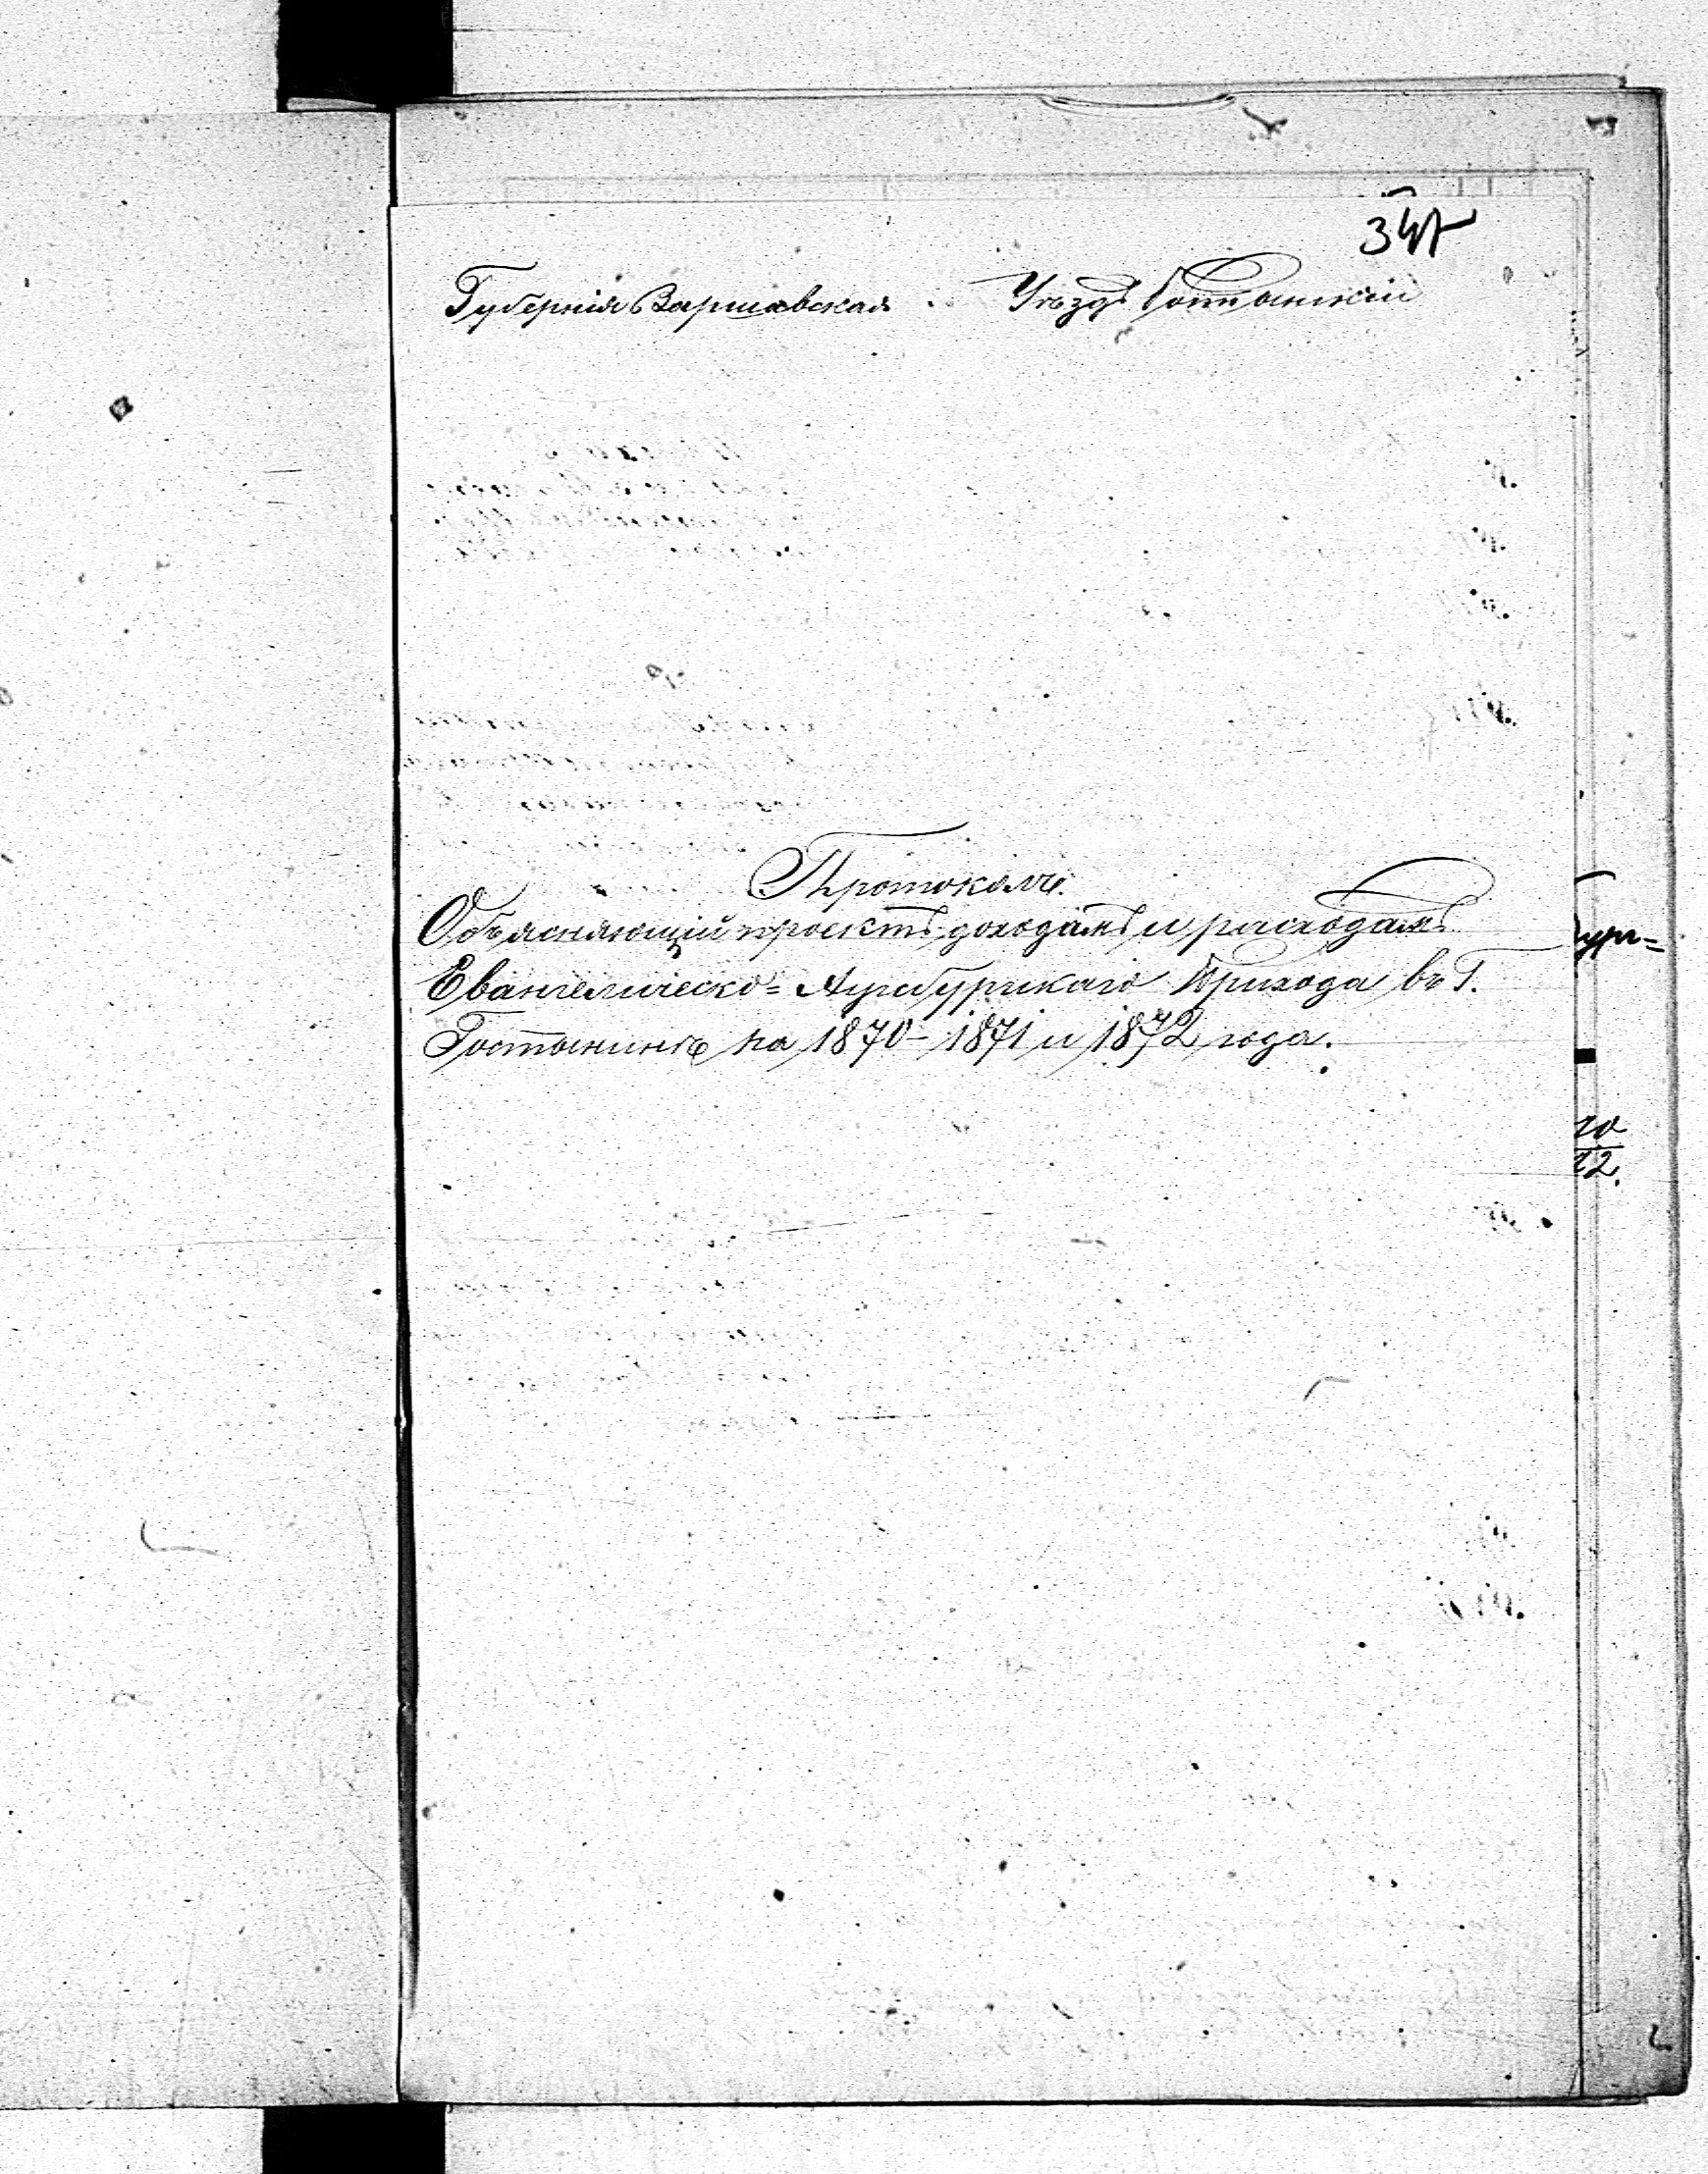 347
Губернія Варшавская. Уѣздъ Гостынскій
Протоколъ.
Объясняющій проектъ доходамъ и расходамъ
Евангелическо=Аугсбургскаго Прихода въ Г.
Гостынинѣ на 1870–1871 и 1872 года.